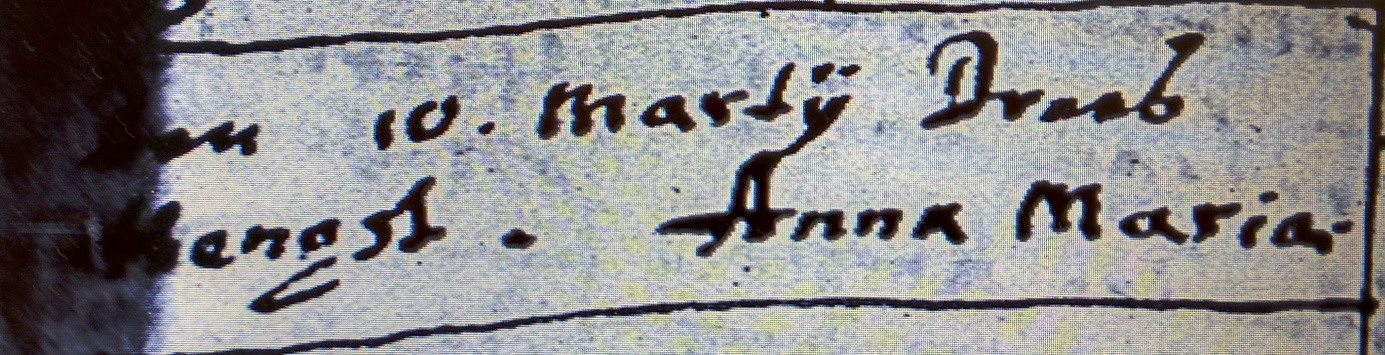 10. Martÿ Dreeb
Hengst. Anna Maria.